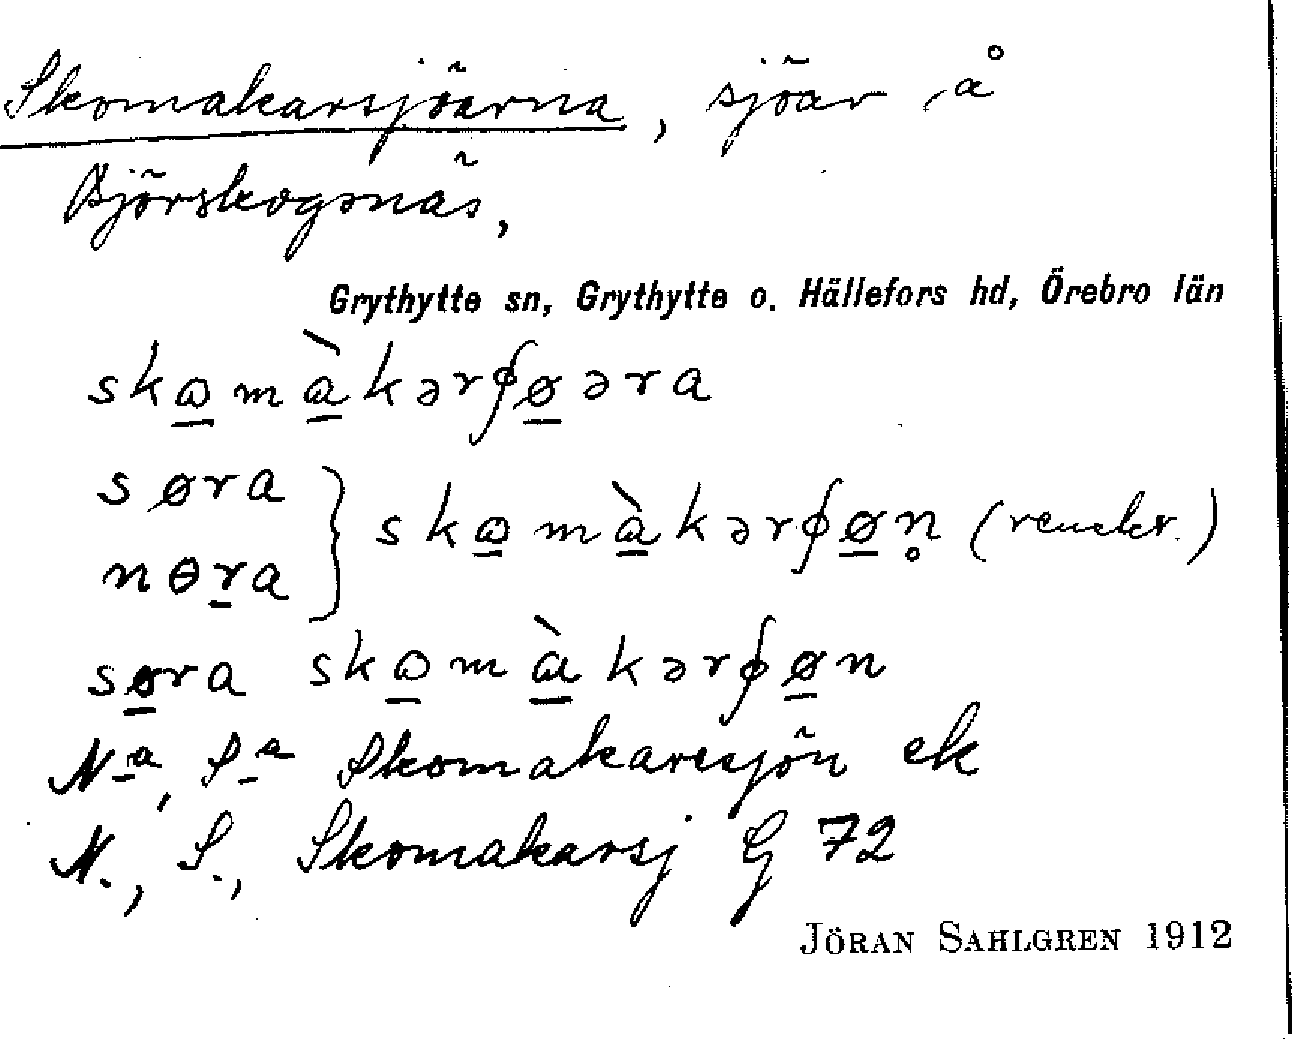 Skomakarsjöarna, sjöar å
Björskogsnäs,
Grythytte sn, Grythytte o. Hällefors hd, Örebro län
skωmàkərʃøəra
søra
nθra } skωmàkərʃøn̥ (renskr.)
søra skωmàkərʃøn
N-a, S-a Skomakaresjön ek
N., S., Skomakarsj G 72
JÖRAN SAHLGREN 1912